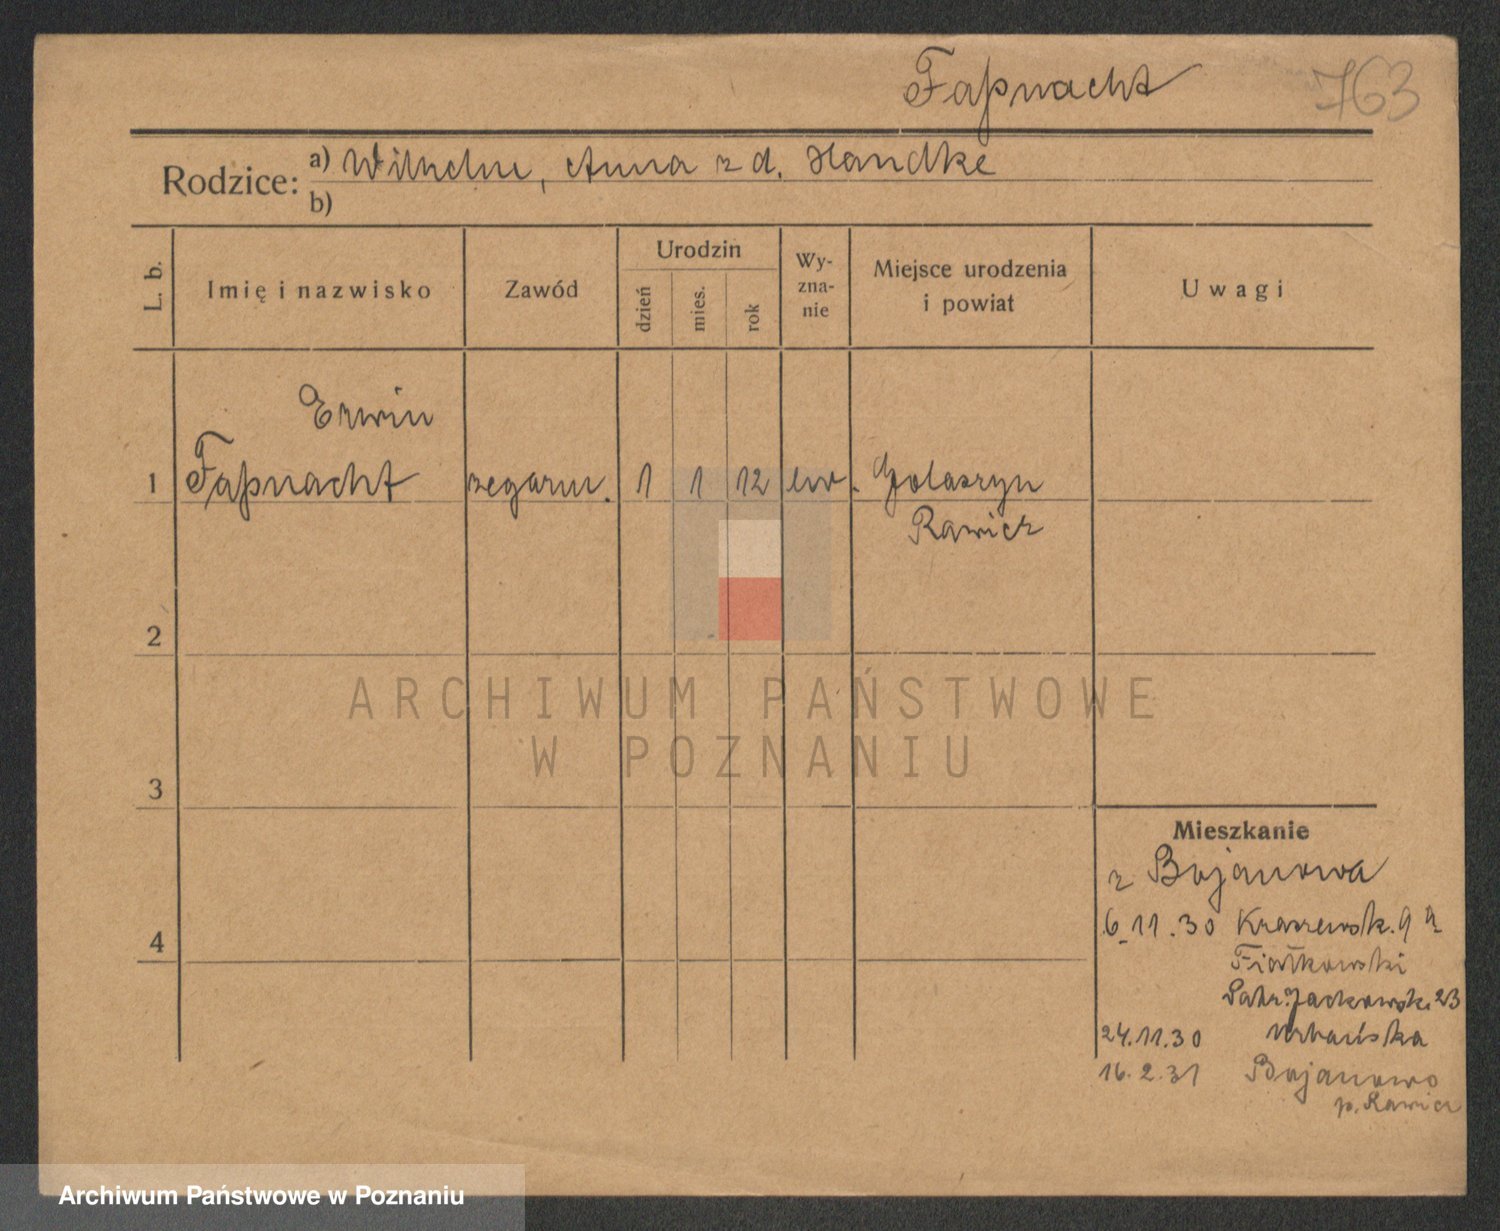 Faßnacht 763
Rodzice: a) Wilhelm, Anna z d. Handke
b)
L. b. Imię i nazwisko Zawód Urodzin dzień mies. rok Wy-zna-nie Miejsce urodzenia i powiat Uwagi
Erwin
1 Faßnacht zegarm. 1 1 12 ew. Golaszyn
Rawicz
2
ARCHIWUM PAŃSTWOWE
W POZNANIU
3
Mieszkanie
z Bojanowa
6.11.30 Kraszewsk. 9 a
4
Fiałkowski
Patr. Jackowsk. 23
24.11.30 Urbańska
16.2.31 Bojanowo
p. Rawicz
Archiwum Państwowe w Poznaniu